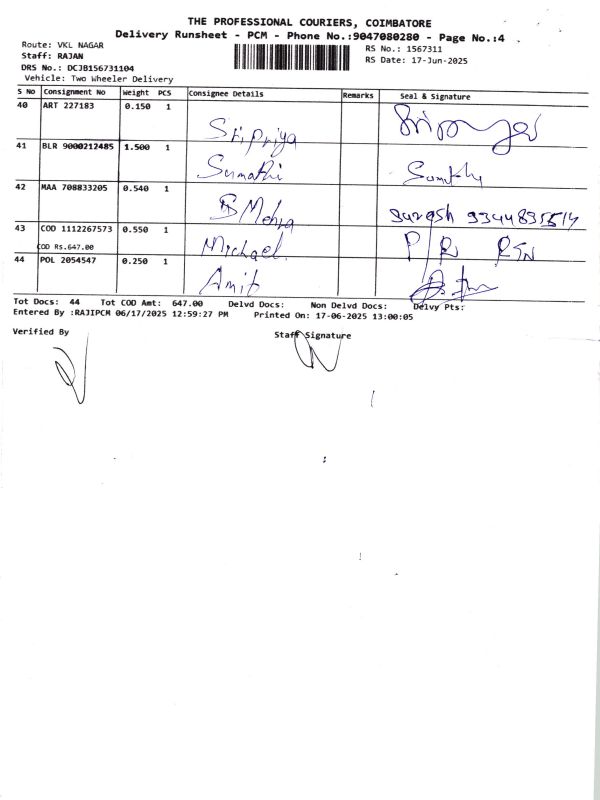 THE PROFESSIONAL COURIERS, COIMBATORE
Delivery Runsheet - PCM - Phone No.:9047080280 - Page No.:4
Route: VKL NAGAR
RS No.: 1567311
Staff: RAJAN
RS Date: 17-Jun-2025
DRS No.: DCJB156731104
Vehicle: Two Wheeler Delivery
S No Consignment No Weight PCS Consignee Details Remarks Seal & Signature
40 ART 227183 0.150 1
Sripriya
41 BLR 9000212485 1.500 1
Sumathi Sumathy
42 MAA 708833205 0.540 1
B Mehra
43 COD 1112267573 0.550 1
COD RS.647.00 Michael.
44 POL 2054547 0.250 1
Amit
Tot Docs: 44 Tot COD Amt: 647.00 Delvd Docs: Non Delvd Docs: Delvy Pts:
Entered By :RAJIPCM 06/17/2025 12:59:27 PM Printed On: 17-06-2025 13:00:05
Verified By Staff Signature